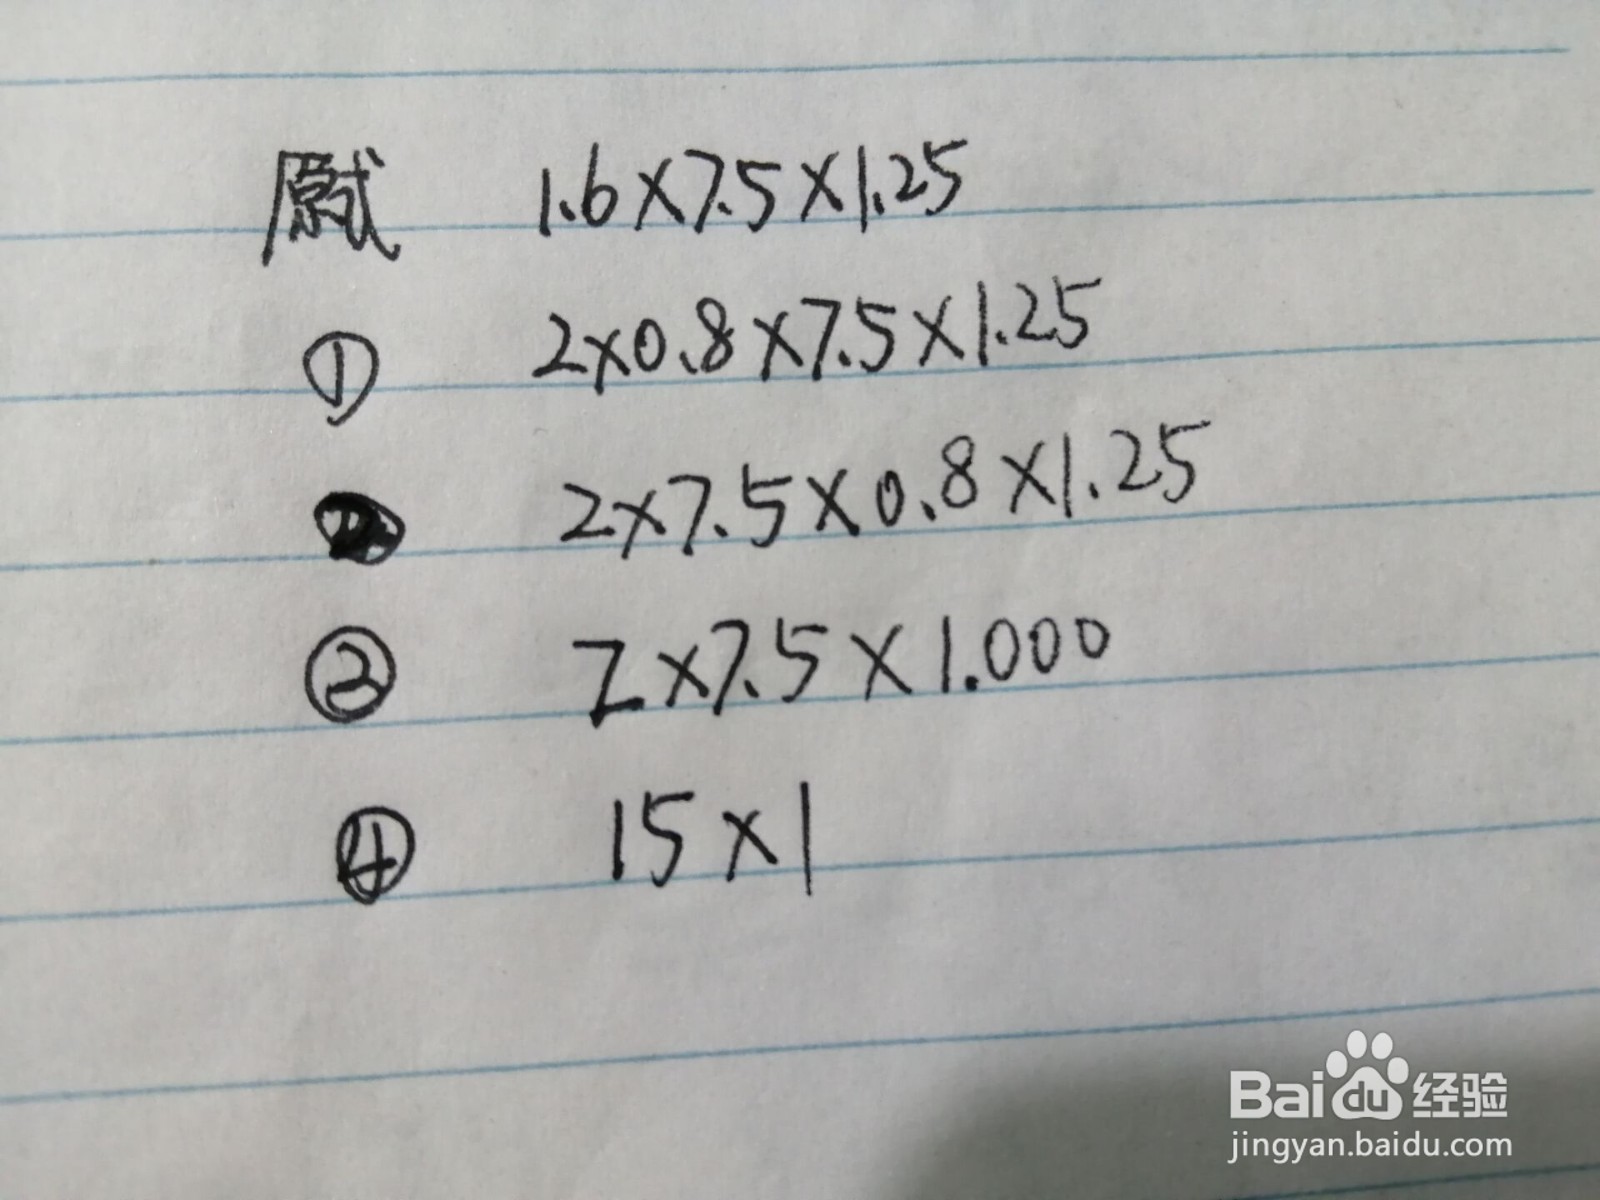 原式 1.6×7.5×1.25
① 2×0.8×7.5×1.25
2×7.5×0.8×1.25
③ 2×7.5×1.000
④ 15×1
Baidu经验
jingyan.baidu.com